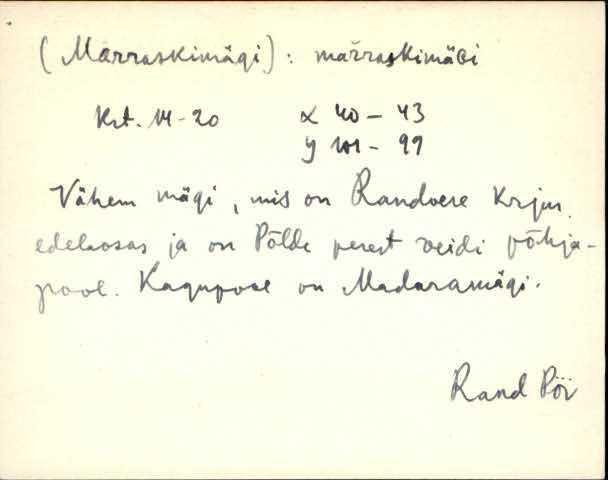 (Marraskimägi): marraskimäGi
Krt. 14-20 x 40 – 43
y 101 - 99
Vähem mägi, mis on Randvere Krjm.
edelaosas ja on Põldi perest veidi põhja-
pool. Kagupool on Madaramägi.
Rand Pöi